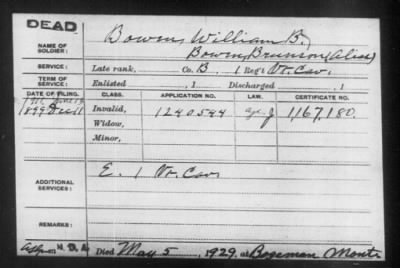 DEAD
NAME OF SOLDIER: Bowen, William B.
Bowen, Brunson (Alias)
SERVICE: Late rank, Co. B, 1 Reg't Vt. Cav.
TERM OF SERVICE: Enlisted , 1 Discharged , 1
DATE OF FILING. CLASS. APPLICATION NO. LAW. CERTIFICATE NO.
1899 Invalid, 1240544 1167,180.
Widow,
Minor,
ADDITIONAL SERVICES: E. 1 Vt. Cav.
REMARKS:
Died May 5, 1929, at Bozeman Mont.